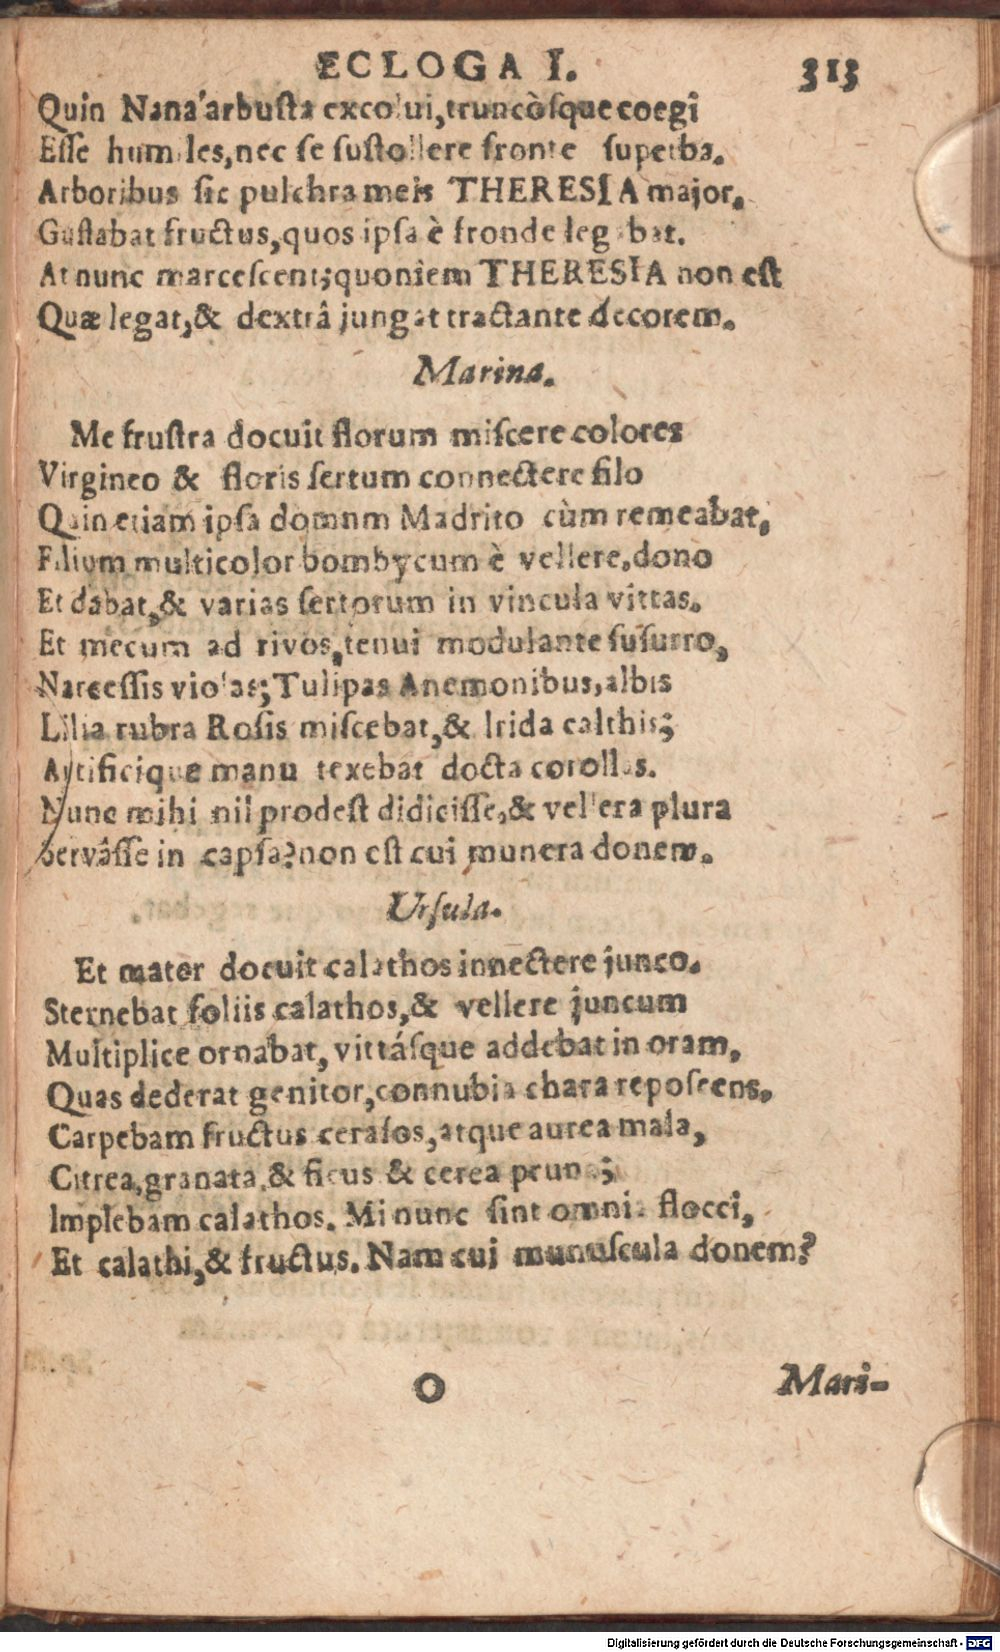 ECLOGA I. 313
Quin Nana arbusta excolui, truncòsque coegi
Esse humiles, nec se sustollere fronte superba.
Arboribus sic pulchra meis THERESIA major.
Gustabat fructus, quos ipsa è fronde legebat.
At nunc marcescent; quoniem THERESIA non est
Quæ legat, & dextrâ jungat tractante decorem.
Marina.
Me frustra docuit florum miscere colores
Virgineo & floris sertum connectere filo
Quin etiam ipsa domnm Madrito cùm remeabat,
Filium multicolor bombycum è vellere, dono
Et dabat, & varias sertorum in vincula vittas.
Et mecum ad rivos, tenui modulante susurro,
Narcessis violas; Tulipas Anemonibus, albis
Lilia rubra Rosis miscebat, & Irida calthis;
Artificique manu texebat docta corollas.
Nunc mihi nil prodest didicisse, & vellera plura
Servâsse in capsa? non est cui munera donem.
Ursula.
Et mater docuit calathos innectere junco.
Sternebat foliis calathos, & vellere juncum
Multiplice ornabat, vittásque addebat in oram,
Quas dederat genitor, connubia chara reposcens.
Carpebam fructus cerasos, atque aurea mala,
Citrea, granata, & ficus & cerea pruna;
Implebam calathos. Mi nunc sint omnia flocci,
Et calathi, & fructus. Nam cui munuscula donem?
O Mari-
Digitalisierung gefördert durch die Deutsche Forschungsgemeinschaft - DFG